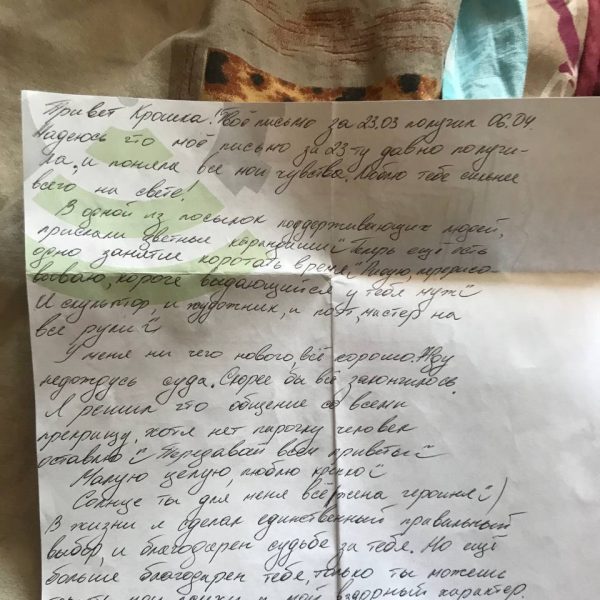 Привет Крошка! Твоё письмо за 23.03 получил 06.04.
Надеюсь что моё письмо за 23-ту давно получи-
ла, и поняла все мои чувства. Люблю тебе сильнее
всего на свете!
В одной из посылок поддерживающих людей,
прислали цветные карандаши Теперь ещё есть
одно занятие коротать время перерисо-
вываю, короче выдающийся у тебя муж
И скульптор, и художник, и поэт, мастер на
все руки
У меня ни чего нового, всё хорошо. Жду
недождусь суда. Скорее бы всё закончилось.
Я решил что общение со всеми
прекращу, хотя нет парочку человек
оставлю Передавай всем приветы
Малую целую, люблю крепко
Солнце ты для меня всё жена героиня )
В жизни я сделал единственный правильный
выбор, и благодарен судьбе за тебя. Но ещё
больше благодарен тебе, только ты можешь
и мой вздорный характер.